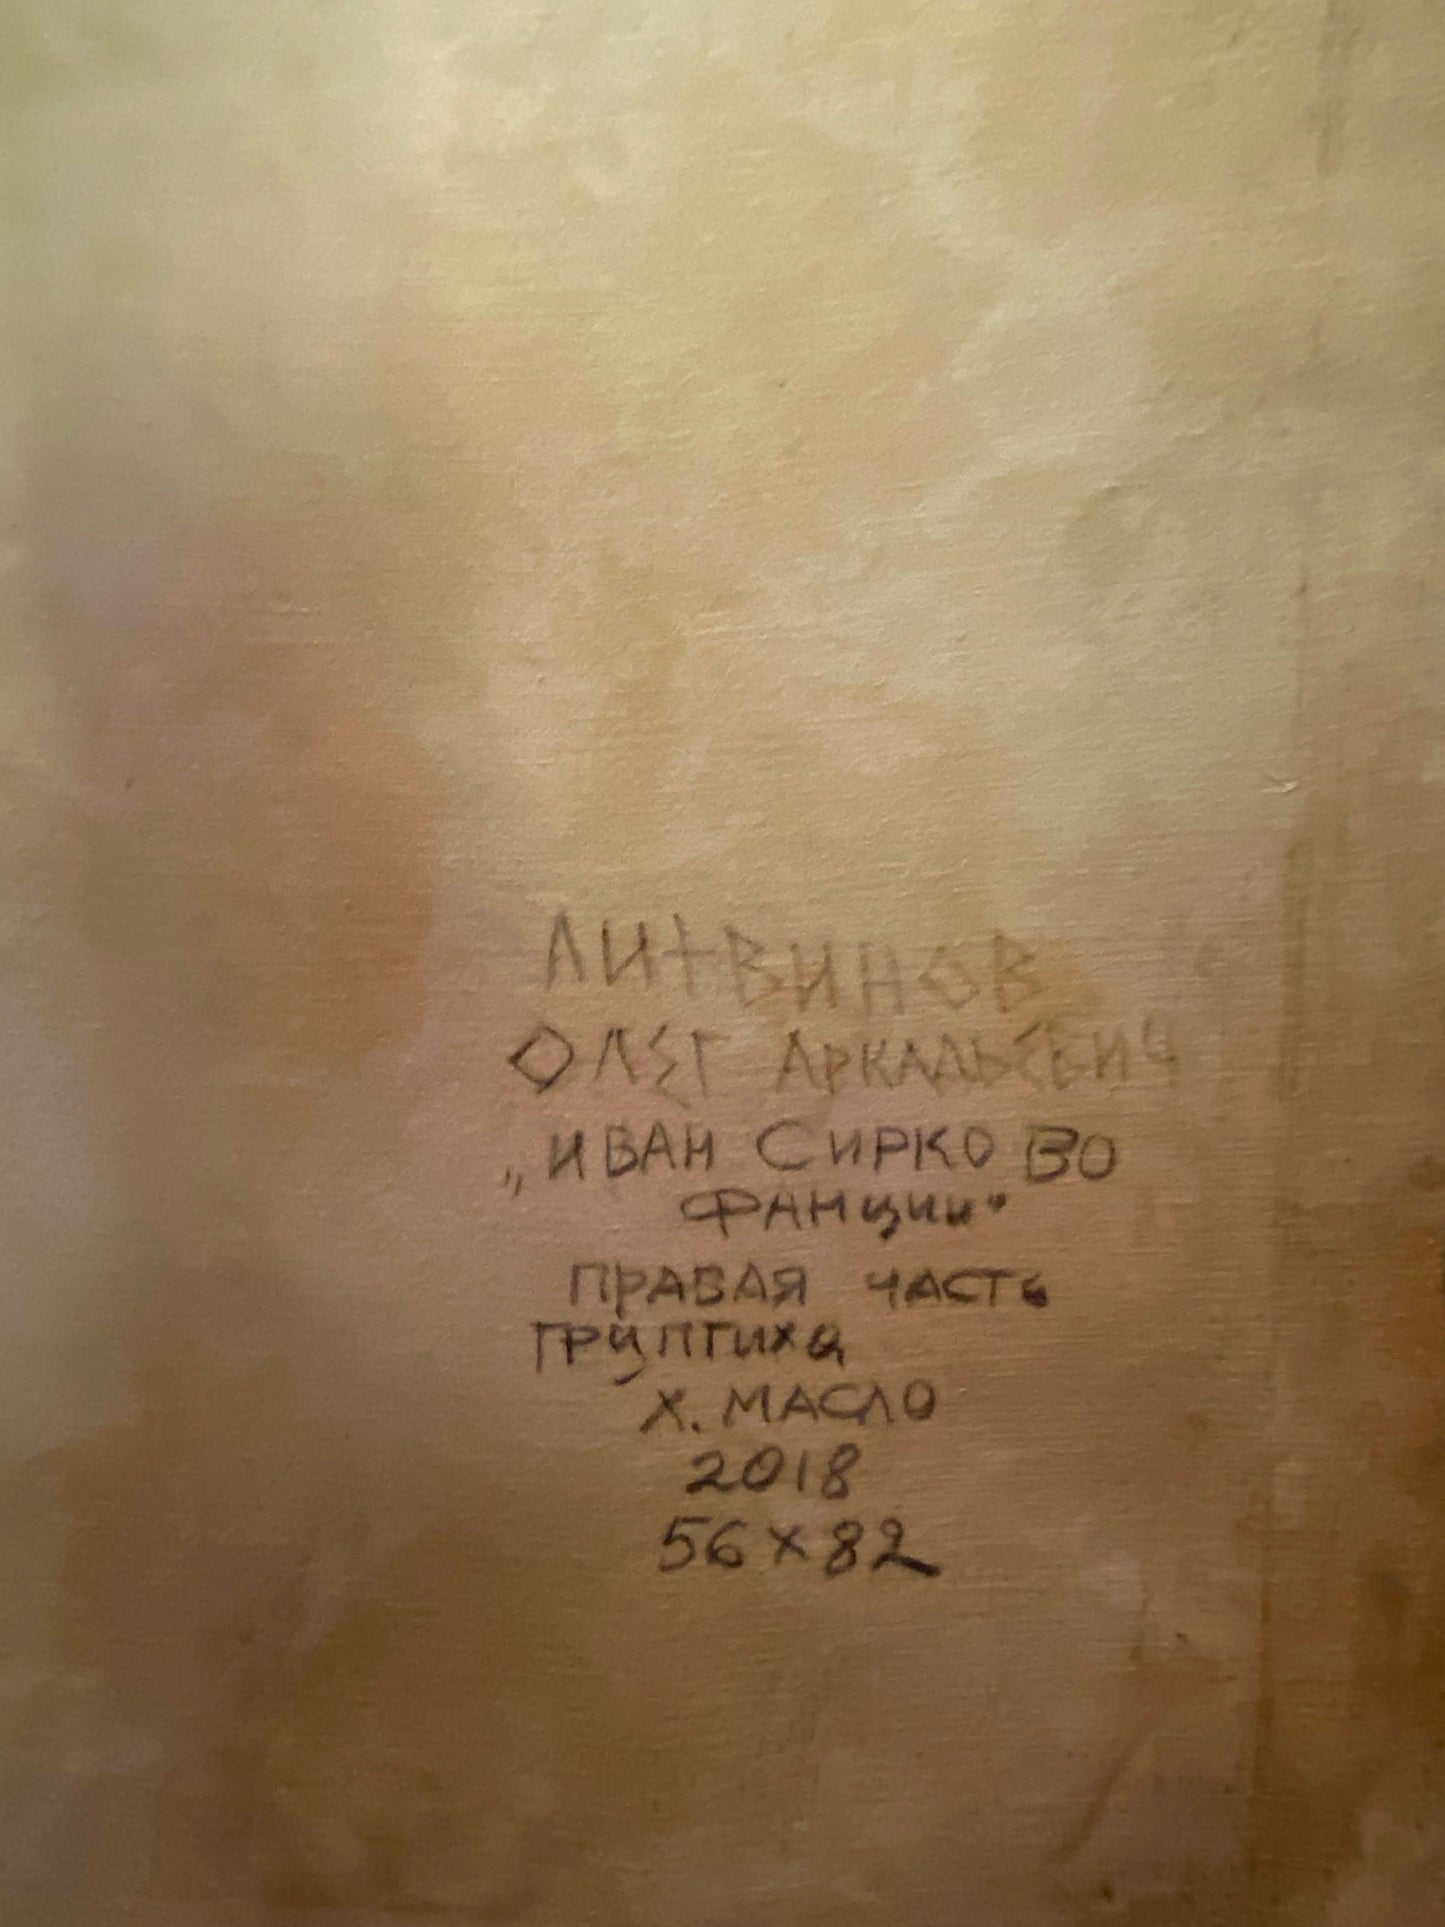 ЛИТВИНОВ
ОЛЕГ АРКАДЬЕВИЧ
„ИВАН СИРКО ВО
ФАНЦИИ"
ПРАВАЯ ЧАСТЬ
ТРИПТИХА
Х. МАСЛО
2018
56 х 82